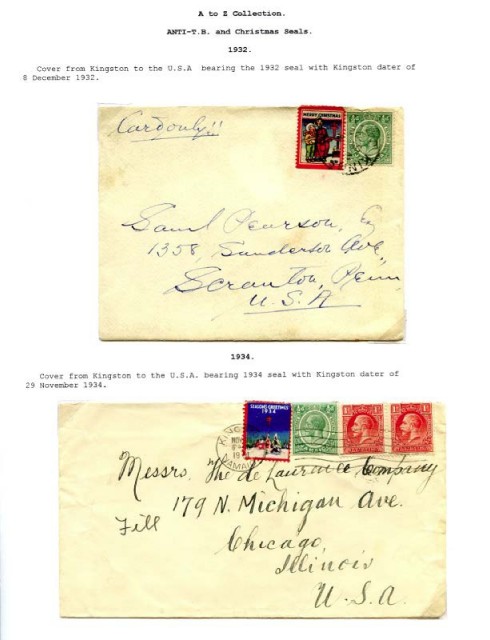 A to Z Collection.
ANTI-T.B. and Christmas Seals.
1932.
Cover from Kingston to the U.S.A bearing the 1932 seal with Kingston dater of
8 December 1932.
Card only!!
MERRY CHRISTMAS
Saml Pearson, Esq
1358, Sanderson Ave,
Scranton, Penn
U.S.A
1934.
Cover from Kingston to the U.S.A. bearing 1934 seal with Kingston dater of
29 November 1934.
SEASONS GREETINGS
1934
KING
NOV
19
JAMAI
Messrs. The de Laurence Company
179 N. Michigan Ave.
Fill
Chicago,
Illinois
U.S.A.